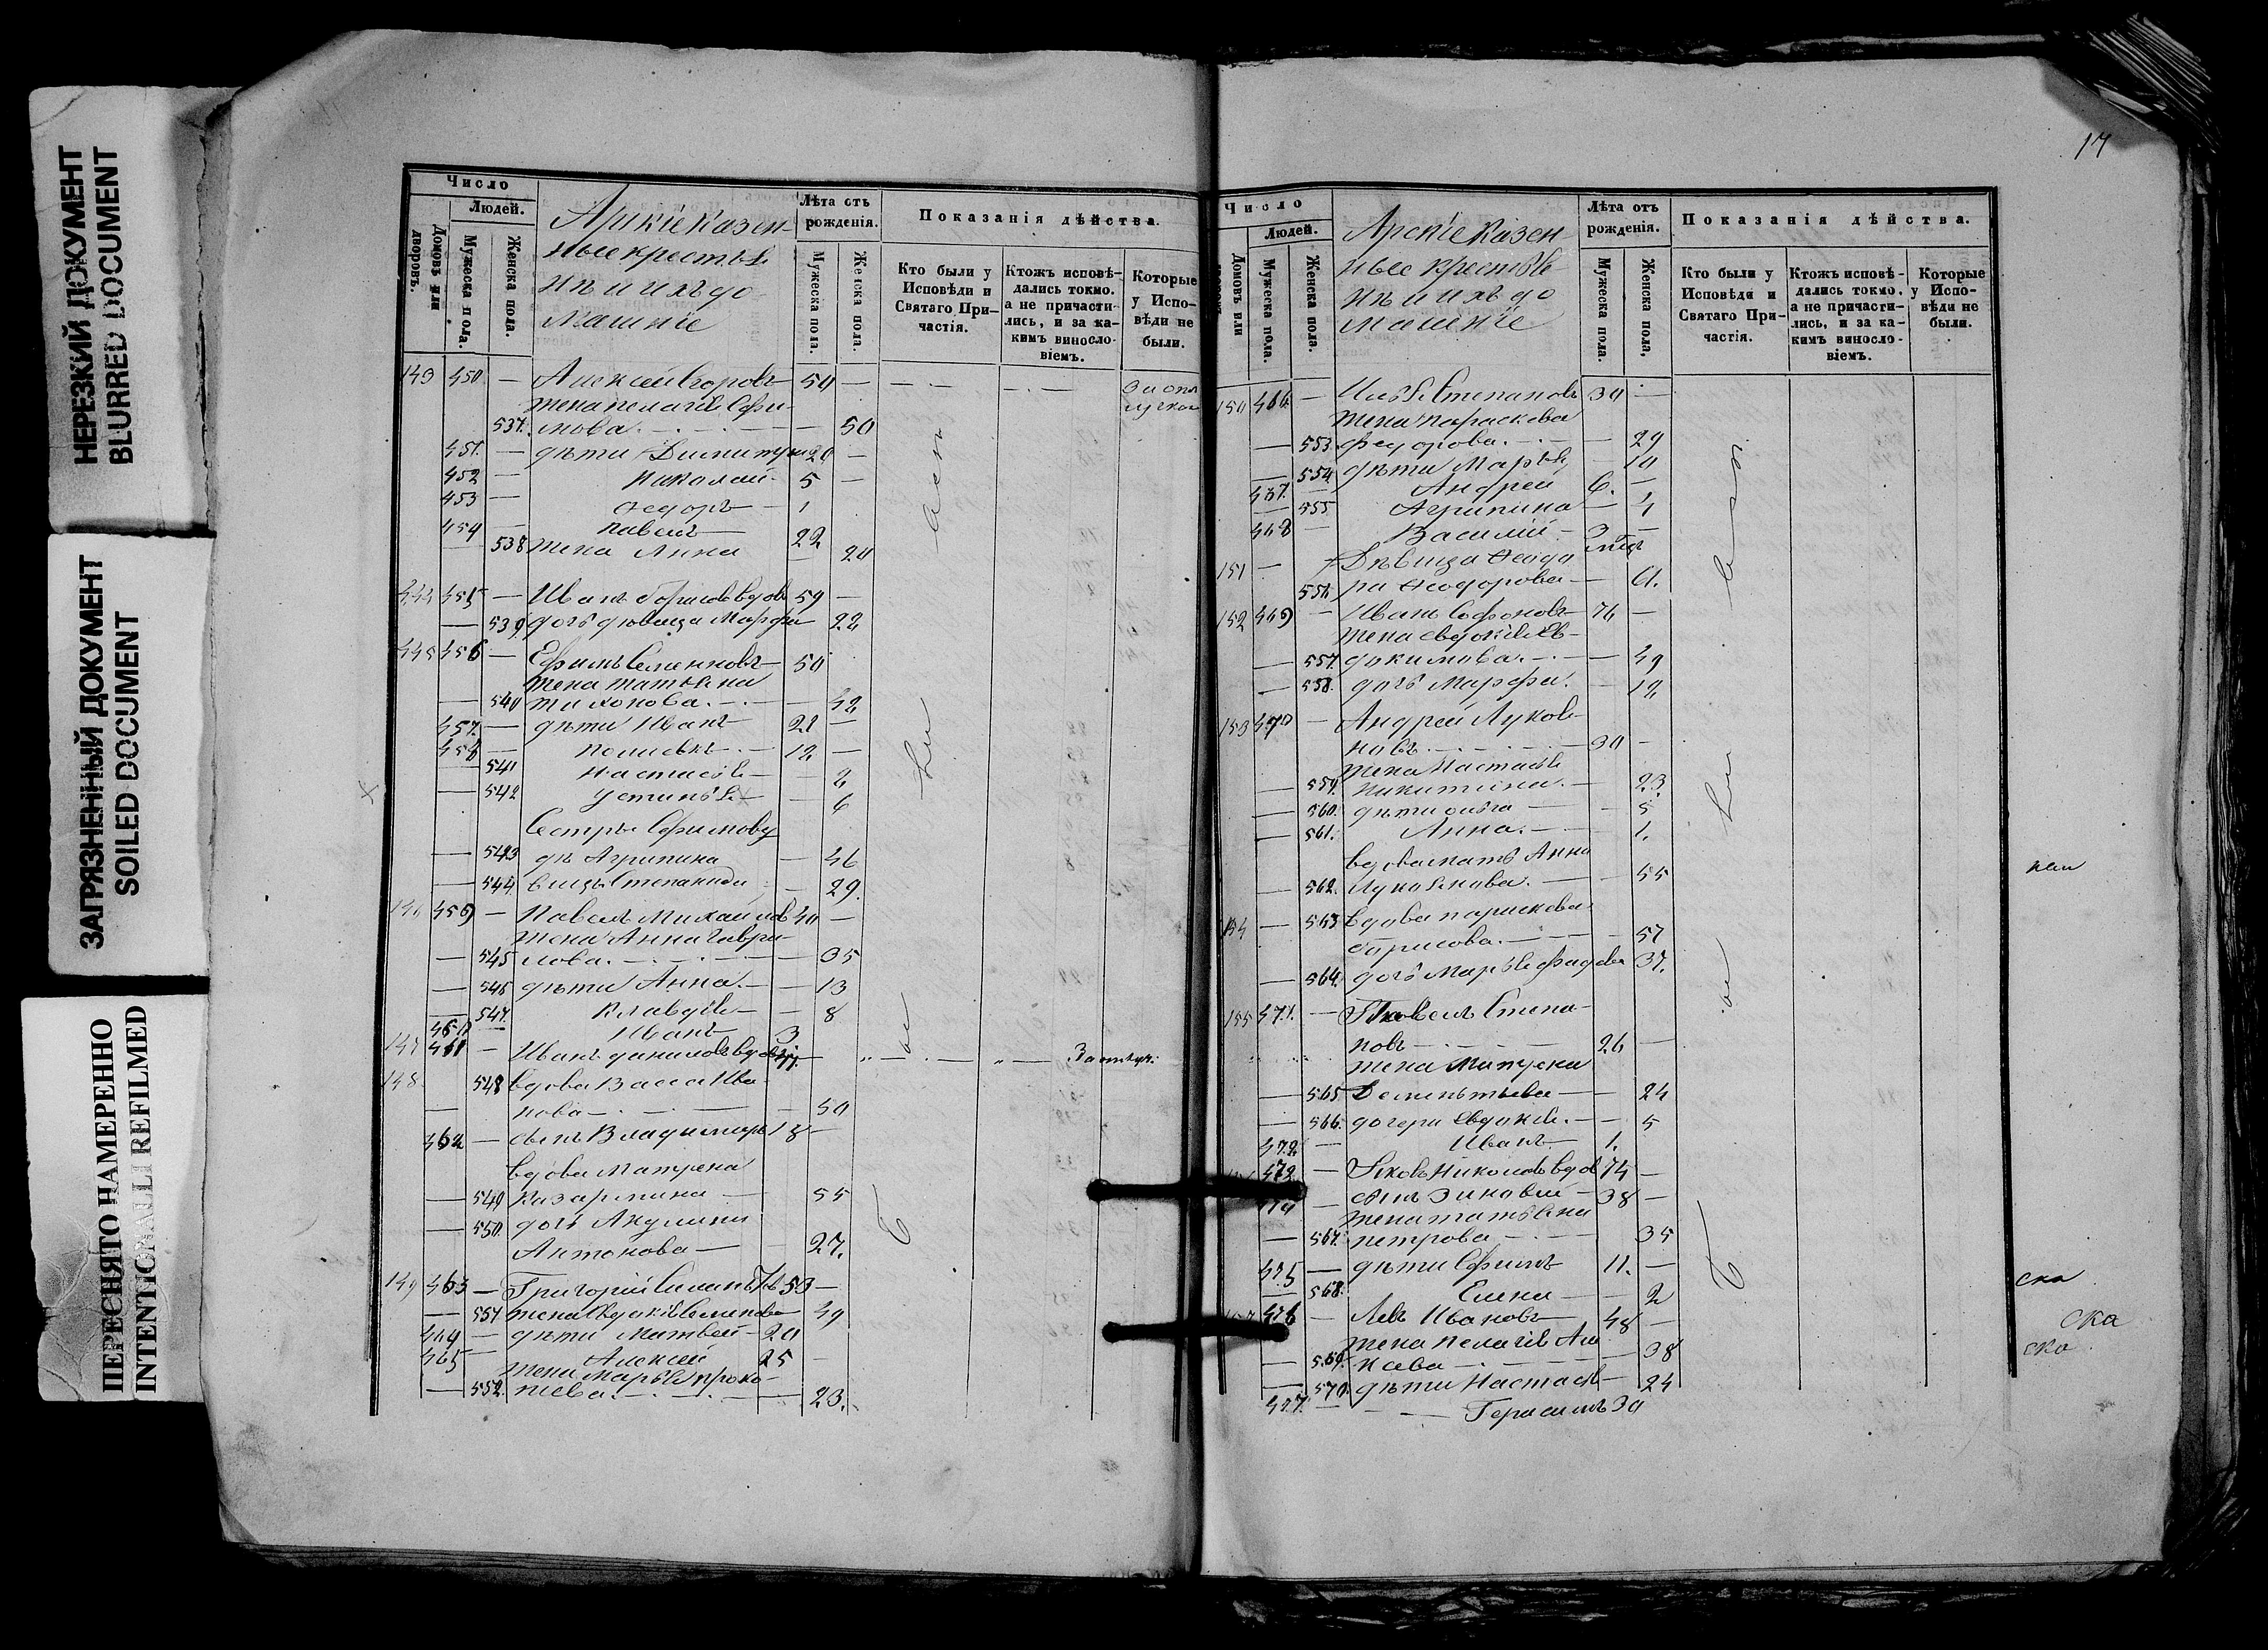 НЕРЕЗКИЙ ДОКУМЕНТ
BLURRED DOCUMENT
ЗАГРЯЗНЕННЫЙ ДОКУМЕНТ
SOILED DOCUMENT
ПЕРЕСНЯТО НАМЕРЕННО
INTENTIONALLI REFILMED
Число
Людей.
Домовъ или дворовъ.
Мужеска пола.
Женска пола.
Арскіе Казен-
ные крестья
не и ихъ до
машніе
Лѣта отъ рожденія.
Мужеска пола.
Женска пола.
Показанія дѣйства.
Кто были у Исповѣди и Святаго При-частія.
Ктожъ исповѣ-дались токмо, а не причасти-лись, и за ка-кимъ винosло-віемъ.
Которые у Испо-вѣди не были.
143 450 — Алексѣй Егоровъ 50 —
жена пелагія Ефи-
537. мова 50
451. — дѣти Димитрій 20 —
452 — Николай 5 —
453 — Ѳедоръ 1
454 — павелъ 22
538 жена Анна 20
444 455 — Иванъ Борисовъ вдовъ 59 —
539 дочь дѣвица Марфа 22
445 456 — Ефимъ Семеновъ 50
жена татьяна
540 тихонова 42
457. — дѣти Иванъ 21 —
458 — 12 —
541 настасья 2
542 устинья 6
Сестры Ефимовы
543 дѣ Агрипина 46
544 вицы Степанида 29.
146 459 — Павелъ Михайловъ 40 —
жена Анна гаври-
545 лова 35
546 дѣти Анна 13
547. Клавдія 8
460 Иванъ 3
147 461 — Иванъ даниловъ вдовъ
148 548 вдова Васса Ива-
нова 50
462 — сынъ Владимиръ 18 —
вдова Матрена
549 Назарьина 55
550. дочь Акулина
Антонова 27.
149 463 — Григорій 53 —
551 жена Евдокія Семенова 49
464 — дѣти Матвей 20
465 — Алексей 25
жена Марья проко-
552 піева 23.
17
Число
Людей.
Домовъ или
Мужеска пола.
Женска пола.
Арскіе Казен
ные крестья
не и ихъ до
машніе
Лѣта отъ рожденія.
Мужеска пола.
Женска пола,
Показанія дѣйства.
Кто были у Исповѣди и Святаго При-частія.
Ктожъ исповѣ-дались токмо, а не причасти-лись, и за ка-кимъ винosло-віемъ.
Которые у Испо-вѣди не были.
150 466 — Илья Степановъ 30 —
жена параскева
553. Федорова 29
554 дѣти Марья 10
467. — Андрей 6. —
555 Агрипина 4
468 — Василій 3 —
151 — Дѣвица Ѳеодо
556. ра Ѳеодорова 61.
152 469 — Иванъ Софоновъ 76 —
жена евдокія Ев-
557. докимова 49
558. дочь Марфа 12
153 470 — Андрей Лукоя
новъ 30 —
жена Настасья
559. никитина 23.
560. дѣти ольга 5
561. Анна 1.
вдова мать Анна
562. Лукоянова. 55
154 — 563 вдова параскева
борисова. 57
564. дочь Марья 37.
155 471. — Павелъ Степа-
новъ 26 —
жена Матрена
565 Дементьева 24
566. дочери Евдокія. 5
472 — Иванъ 1.
473. — Яковъ Николаевъ вдов 74 —
сынъ Зиновей 38 —
жена татьяна
567. петрова 35
475 — дѣти Ефимъ 11. —
568. Елена 2
476 — Левъ Ивановъ 48 —
жена пелагія
569. 38
570. дѣти Настасья 24
477. — Герасимъ 30
ска
ска
ска